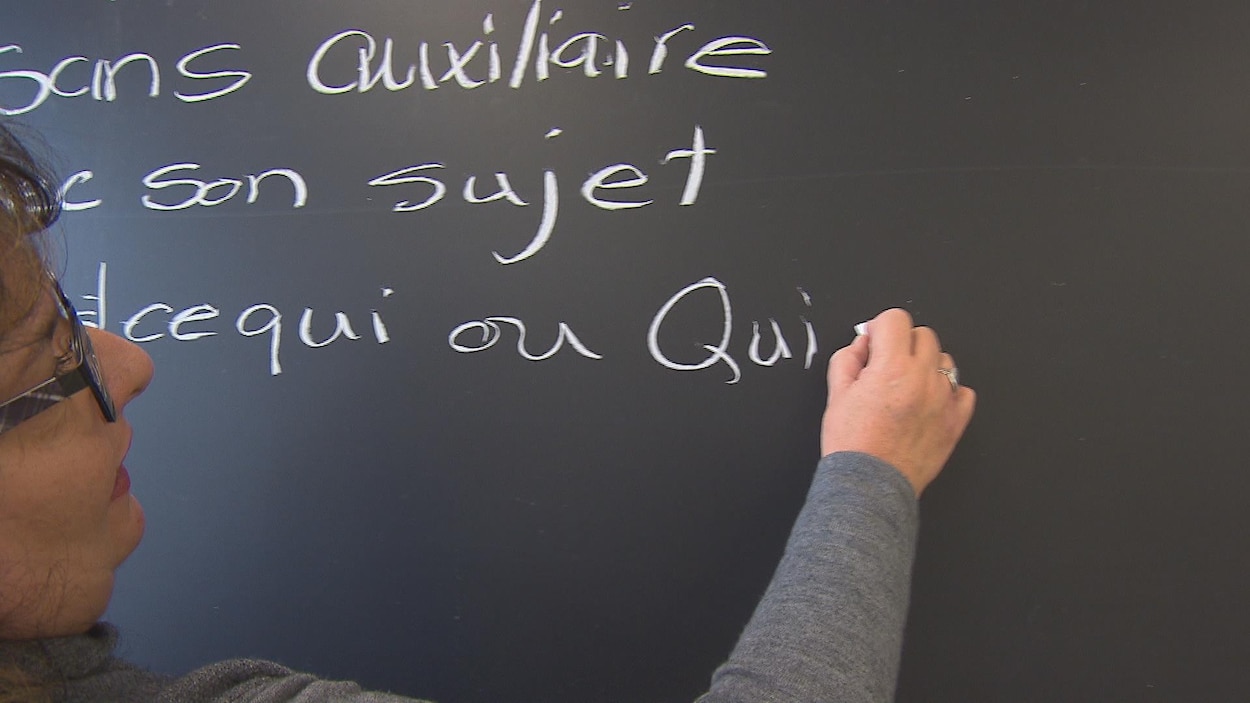 sans auxiliaire
c son sujet
dcequi ou Qui